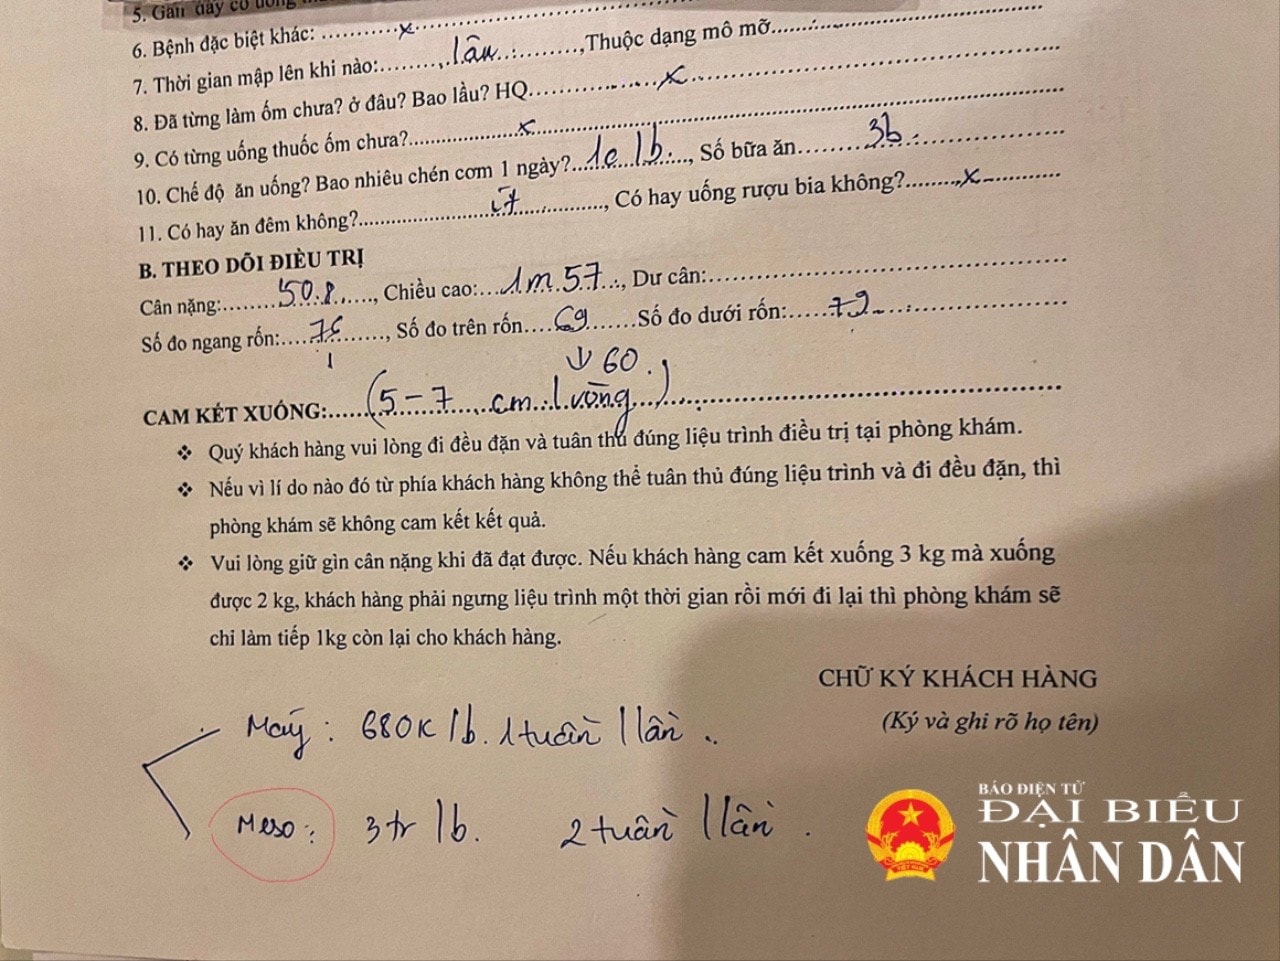 5. Gần đây có uống
6. Bệnh đặc biệt khác: ............x............
7. Thời gian mập lên khi nào:........lâu........,Thuộc dạng mô mỡ............
8. Đã từng làm ốm chưa? ở đâu? Bao lâu? HQ............x............
9. Có từng uống thuốc ốm chưa?............x............
10. Chế độ ăn uống? Bao nhiêu chén cơm 1 ngày?....1c lb...., Số bữa ăn........3b........
11. Có hay ăn đêm không?............ít............, Có hay uống rượu bia không?........x........
B. THEO DÕI ĐIỀU TRỊ
Cân nặng:........50.8......, Chiều cao:...1m57..., Dư cân:............
Số đo ngang rốn:............, Số đo trên rốn....69........Số đo dưới rốn:......79......
↓ 60.
CAM KẾT XUỐNG:......(5-7 cm / vòng)............
❖ Quý khách hàng vui lòng đi đều đặn và tuân thủ đúng liệu trình điều trị tại phòng khám.
❖ Nếu vì lí do nào đó từ phía khách hàng không thể tuân thủ đúng liệu trình và đi đều đặn, thì
phòng khám sẽ không cam kết kết quả.
❖ Vui lòng giữ gìn cân nặng khi đã đạt được. Nếu khách hàng cam kết xuống 3 kg mà xuống
được 2 kg, khách hàng phải ngưng liệu trình một thời gian rồi mới đi lại thì phòng khám sẽ
chỉ làm tiếp 1kg còn lại cho khách hàng.
CHỮ KÝ KHÁCH HÀNG
(Ký và ghi rõ họ tên)
Máy: 680K /b. 1 tuần 1 lần ..
Meso: 3tr /b. 2 tuần 1 lần .
BÁO ĐIỆN TỬ
ĐẠI BIỂU
NHÂN DÂN
VIỆT NAM